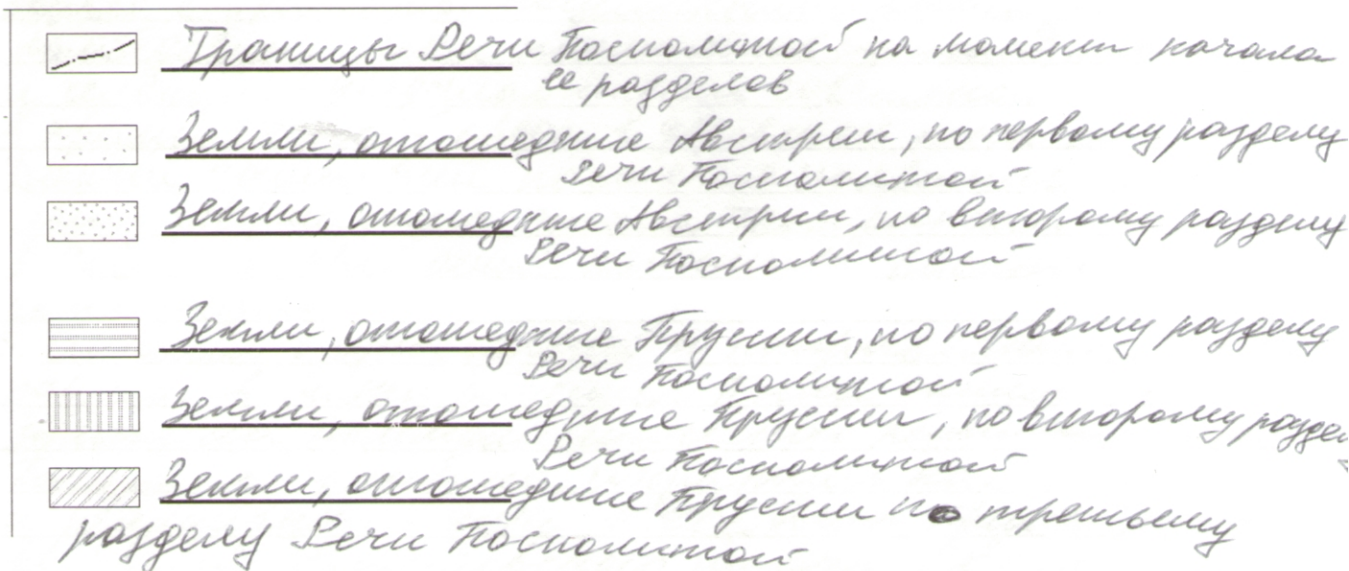 Границы Речи Посполитой на момент начала
ее разделов
Земли, отошедшие Австрии, по первому разделу
Речи Посполитой
Земли, отошедшие Австрии, по второму разделу
Речи Посполитой
Земли, отошедшие Пруссии, по первому разделу
Речи Посполитой
Земли, отошедшие Пруссии, по второму раздел
Речи Посполитой
Земли, отошедшие Пруссии по третьему
разделу Речи Посполитой